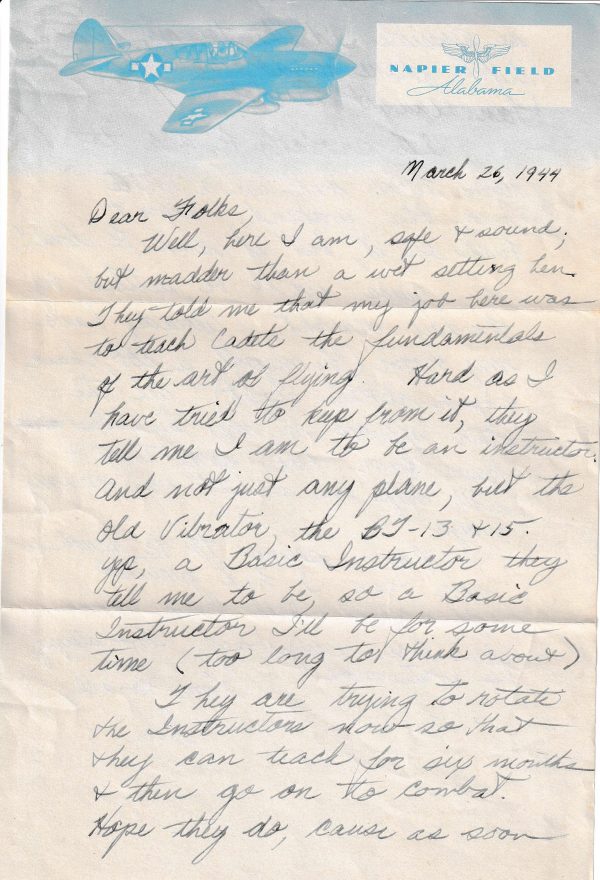 NAPIER FIELD
Alabama
March 26, 1944
Dear Folks,
Well, here I am, safe & sound,
but madder than a wet setting hen.
They told me that my job here was
to teach Cadets the fundamentals
of the art of flying. Hard as I
have tried to keep from it, they
tell me I am to be an instructor.
And not just any plane, but the
Old Vibrator, the BT-13 & 15.
Yep, a Basic Instructor they
tell me to be, so a Basic
Instructor I'll be for some
time (too long to think about)
They are trying to rotate
the Instructors now so that
they can teach for six months
& then go on to combat.
Hope they do, cause as soon